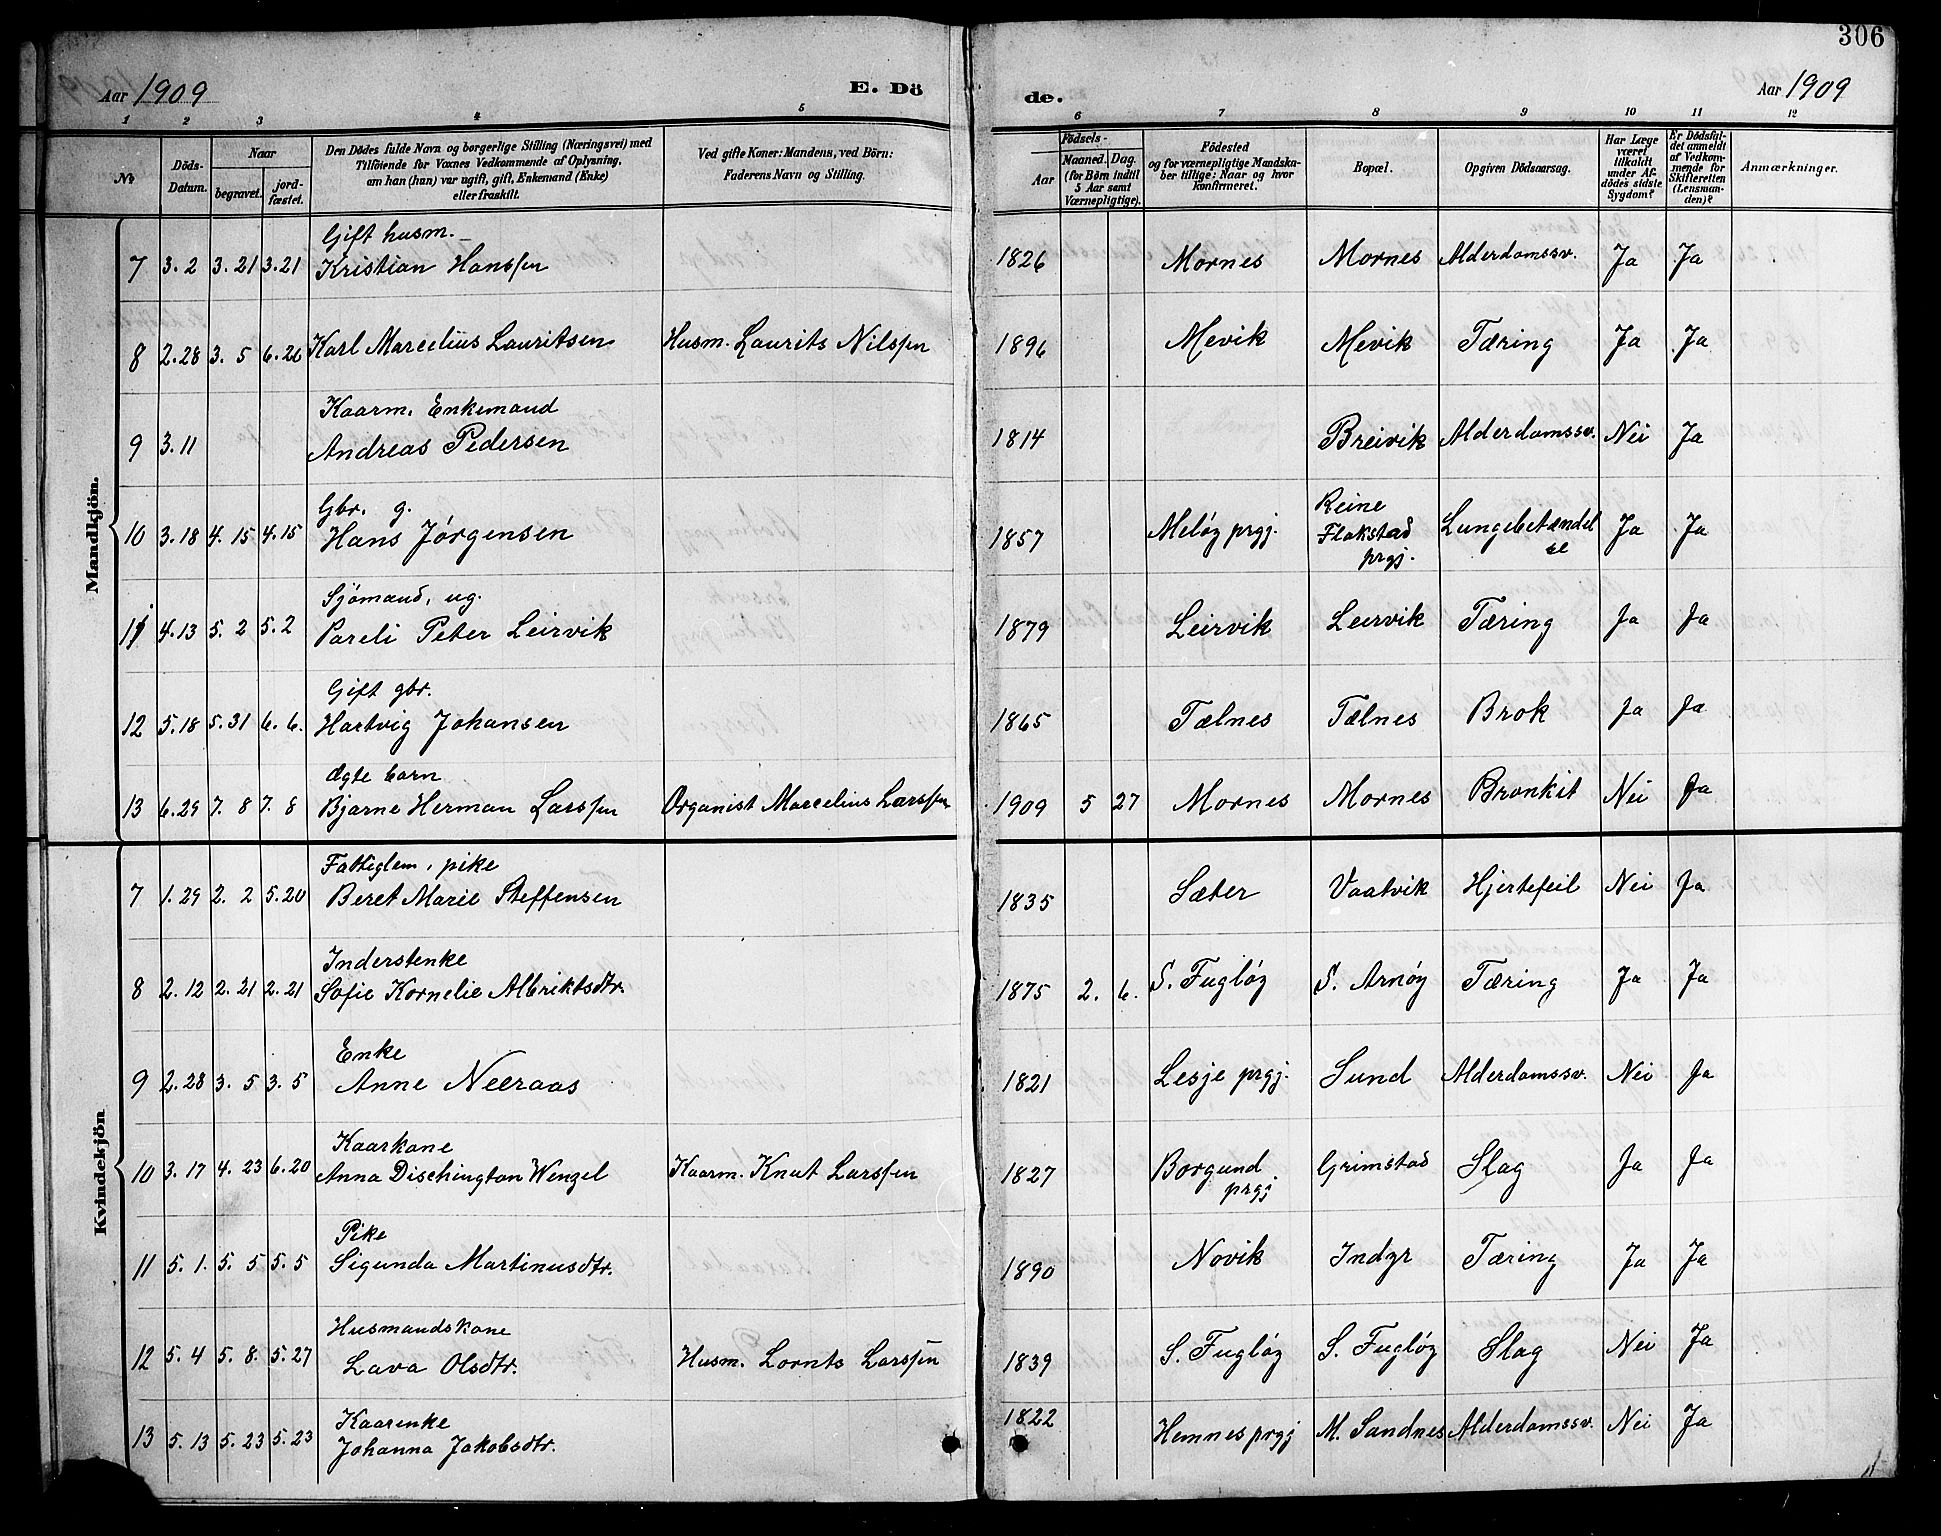 306
Aar 1909
E. Dö
de.
Aar 1909
1 2 3 4 5 6 7 8 9 10 11 12
№
Döds-
Datum.
Naar
begravet.
jord-
fæstet.
Den Dödes fulde Navn og borgerlige Stilling (Næringsvei) med
Tilföiende for Voxnes Vedkommende af Oplysning,
om han (hun) var ugift, gift, Enkemand (Enke)
eller fraskilt.
Ved gifte Koner: Mandens, ved Börn:
Faderens Navn og Stilling.
Födsels-
Aar
Maaned. Dag.
(for Börn indtil
5 Aar samt
Værnepligtige).
Födested
og for værnepligtige Mandska-
ber tillige: Naar og hvor
konfirmeret.
Bopæl.
Opgiven Dödsaarsag.
Har Læge
været
tilkaldt
under Af-
dödes sidste
Sygdom?
Er Dödsfal-
det anmeldt
af Vedkom-
mende for
Skifteretten
(Lensman-
den)?
Anmærkninger.
Mandkjön.
Gift husm.
7 3.2 3.21 3.21 Kristian Hanssen 1826 Mornes Mornes Alderdomssv. Ja Ja
8 2.28 3.5 6.20 Karl Marcelius Lauritsen Husm. Laurits Nilssen 1896 Mevik Mevik Tæring Ja Ja
Kaarm. Enkemand
9 3.11 Andreas Pedersen 1814 Breivik Alderdomssv. Nei Ja
Gbr. g.
10 3.18 4.15 4.15 Hans Jørgensen 1857 Meløy prgj. Reine
Flakstad
prgj. Lungebetændel
se Ja Ja
Sjømand, ug.
11 4.13 5.2 5.2 Pareli Peter Leirvik 1879 Leirvik Leirvik Tæring Ja Ja
Gift gbr.
12 5.18 5.31 6.6. Hartvig Johansen 1865 Tælnes Tælnes Brok Ja Ja
Ægte barn
13 6.29 7.8 7.8 Bjarne Herman Larssen Organist Marcelius Larssen 1909 5 27 Mornes Mornes Bronkit Nei Ja
Kvindekjön
Fattiglem, pike
7 1.29 2.2 5.20 Beret Marie Steffensen 1835 Sæter Vaatvik Hjertefeil Nei Ja
Inderstenke
8 2.12 2.21 2.21 Sofie Kornelie Albriktsdtr. 1875 2. 6. S. Fugløy S. Arnøy Tæring Ja Ja
Enke
9 2.28 3.5 3.5 Anne Neeraas 1821 Lesje prgj. Sund Alderdomssv. Nei Ja
Kaarkone
10 3.17 4.23 6.20 Anna Dischington Wenzel Kaarm. Knut Larssen 1827 Borgund
prgj Grimstad Slag Ja Ja
Pike
11 5.1. 5.5 5.5 Sigunda Martinusdtr. 1890 Novik Indyr Tæring Ja Ja
Husmandskone
12 5.4 5.8. 5.27 Lava Olsdtr. Husm. Lornts Larssen 1839 S. Fugløy S. Fugløy Slag Nei Ja
Kaarenke
13 5.13 5.23 5.23 Johanna Jakobsdtr. 1822 Hemnes prgj M. Sandnes Alderdomssv. Nei Ja